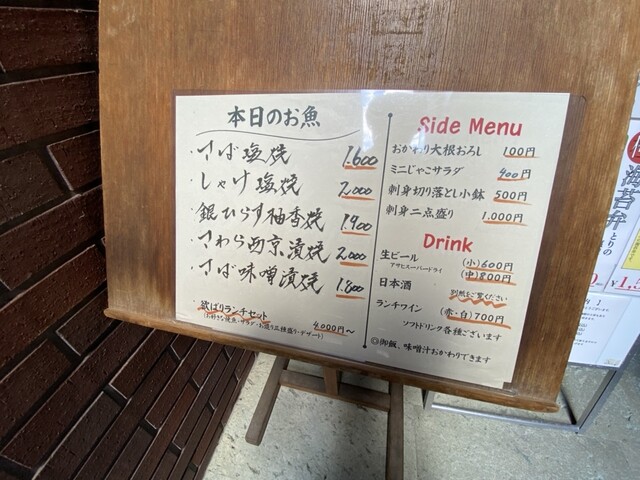 本日のお魚
・さば塩焼 1.600
・しゃけ塩焼 2.000
・銀ひらす柚香焼 1.900
・さわら西京漬焼 2.000
・さば味噌漬焼 1.800
・欲ばりランチセット 4.000円～
Side Menu
おかわり大根おろし 100円
ミニじゃこサラダ 400円
刺身切り落とし小鉢 500円
刺身二点盛り 1.000円
Drink
生ビール (小)600円
アサヒスーパードライ (中)800円
日本酒 別紙をご覧ください
ランチワイン (赤・白)700円
ソフトドリンク各種ございます
◎御飯、味噌汁おかわりできます
海苔弁